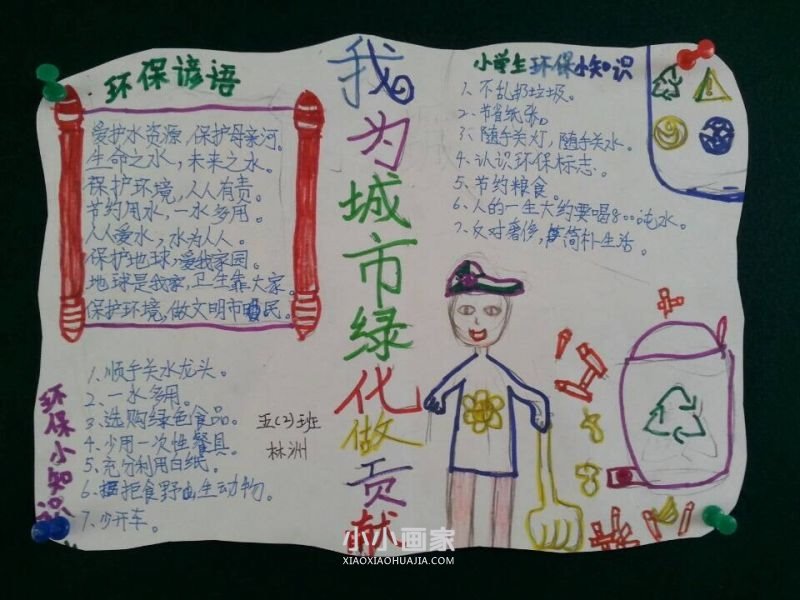 环保谚语
爱护水资源，保护母亲河。
生命之水，未来之水。
保护环境，人人有责。
节约用水，一水多用。
人人爱水，水为人人。
保护地球，爱我家园。
地球是我家，卫生靠大家。
保护环境，做文明市民。
环保小知识
1、顺手关水龙头。
2、一水多用。
3、选购绿色食品。
4、少用一次性餐具。
5、充分利用白纸。
6、拒食野生动物。
7、少开车。
五(2)班
林洲
我为城市绿化做贡献
小学生环保小知识
1、不乱扔垃圾。
2、节省纸张。
3、随手关灯，随手关水。
4、认识环保标志。
5、节约粮食。
6、人的一生大约要喝80吨水。
7、反对奢侈，简朴生活。
小小画家
XIAOXIAOHUAJIA.COM